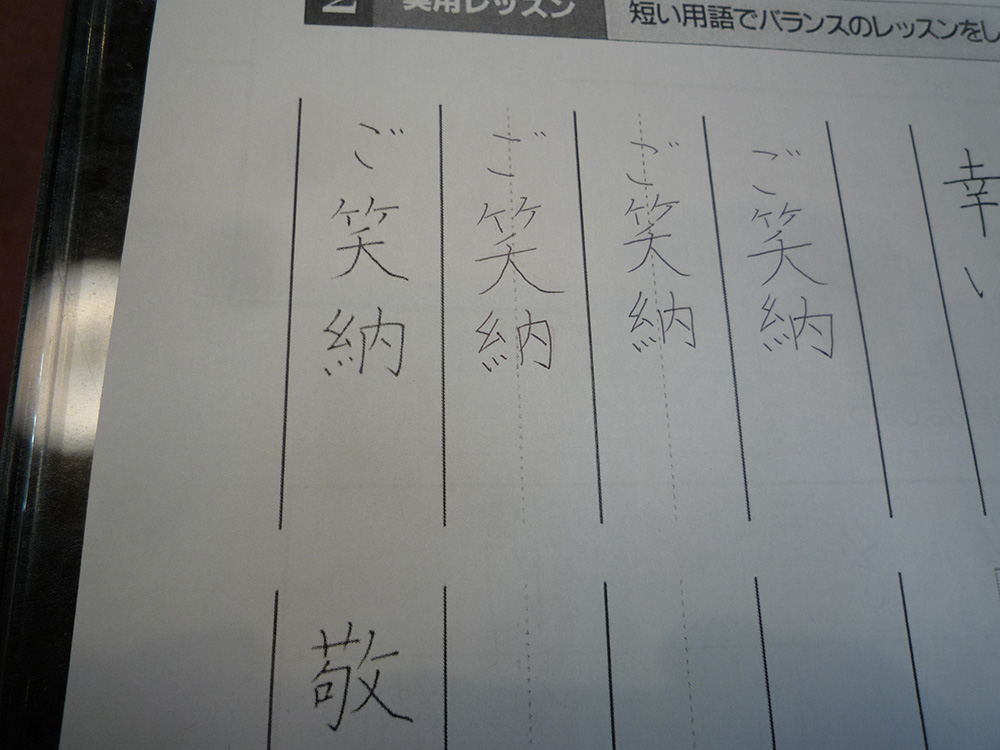 2 実用レッスン
短い用語でバランスのレッスンをし
幸い
ご笑納
ご笑納
ご笑納
ご笑納
敬